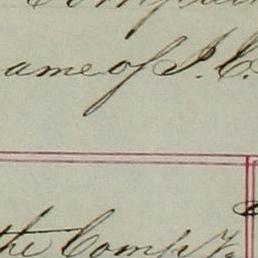 ame of J. C.
the Compy.